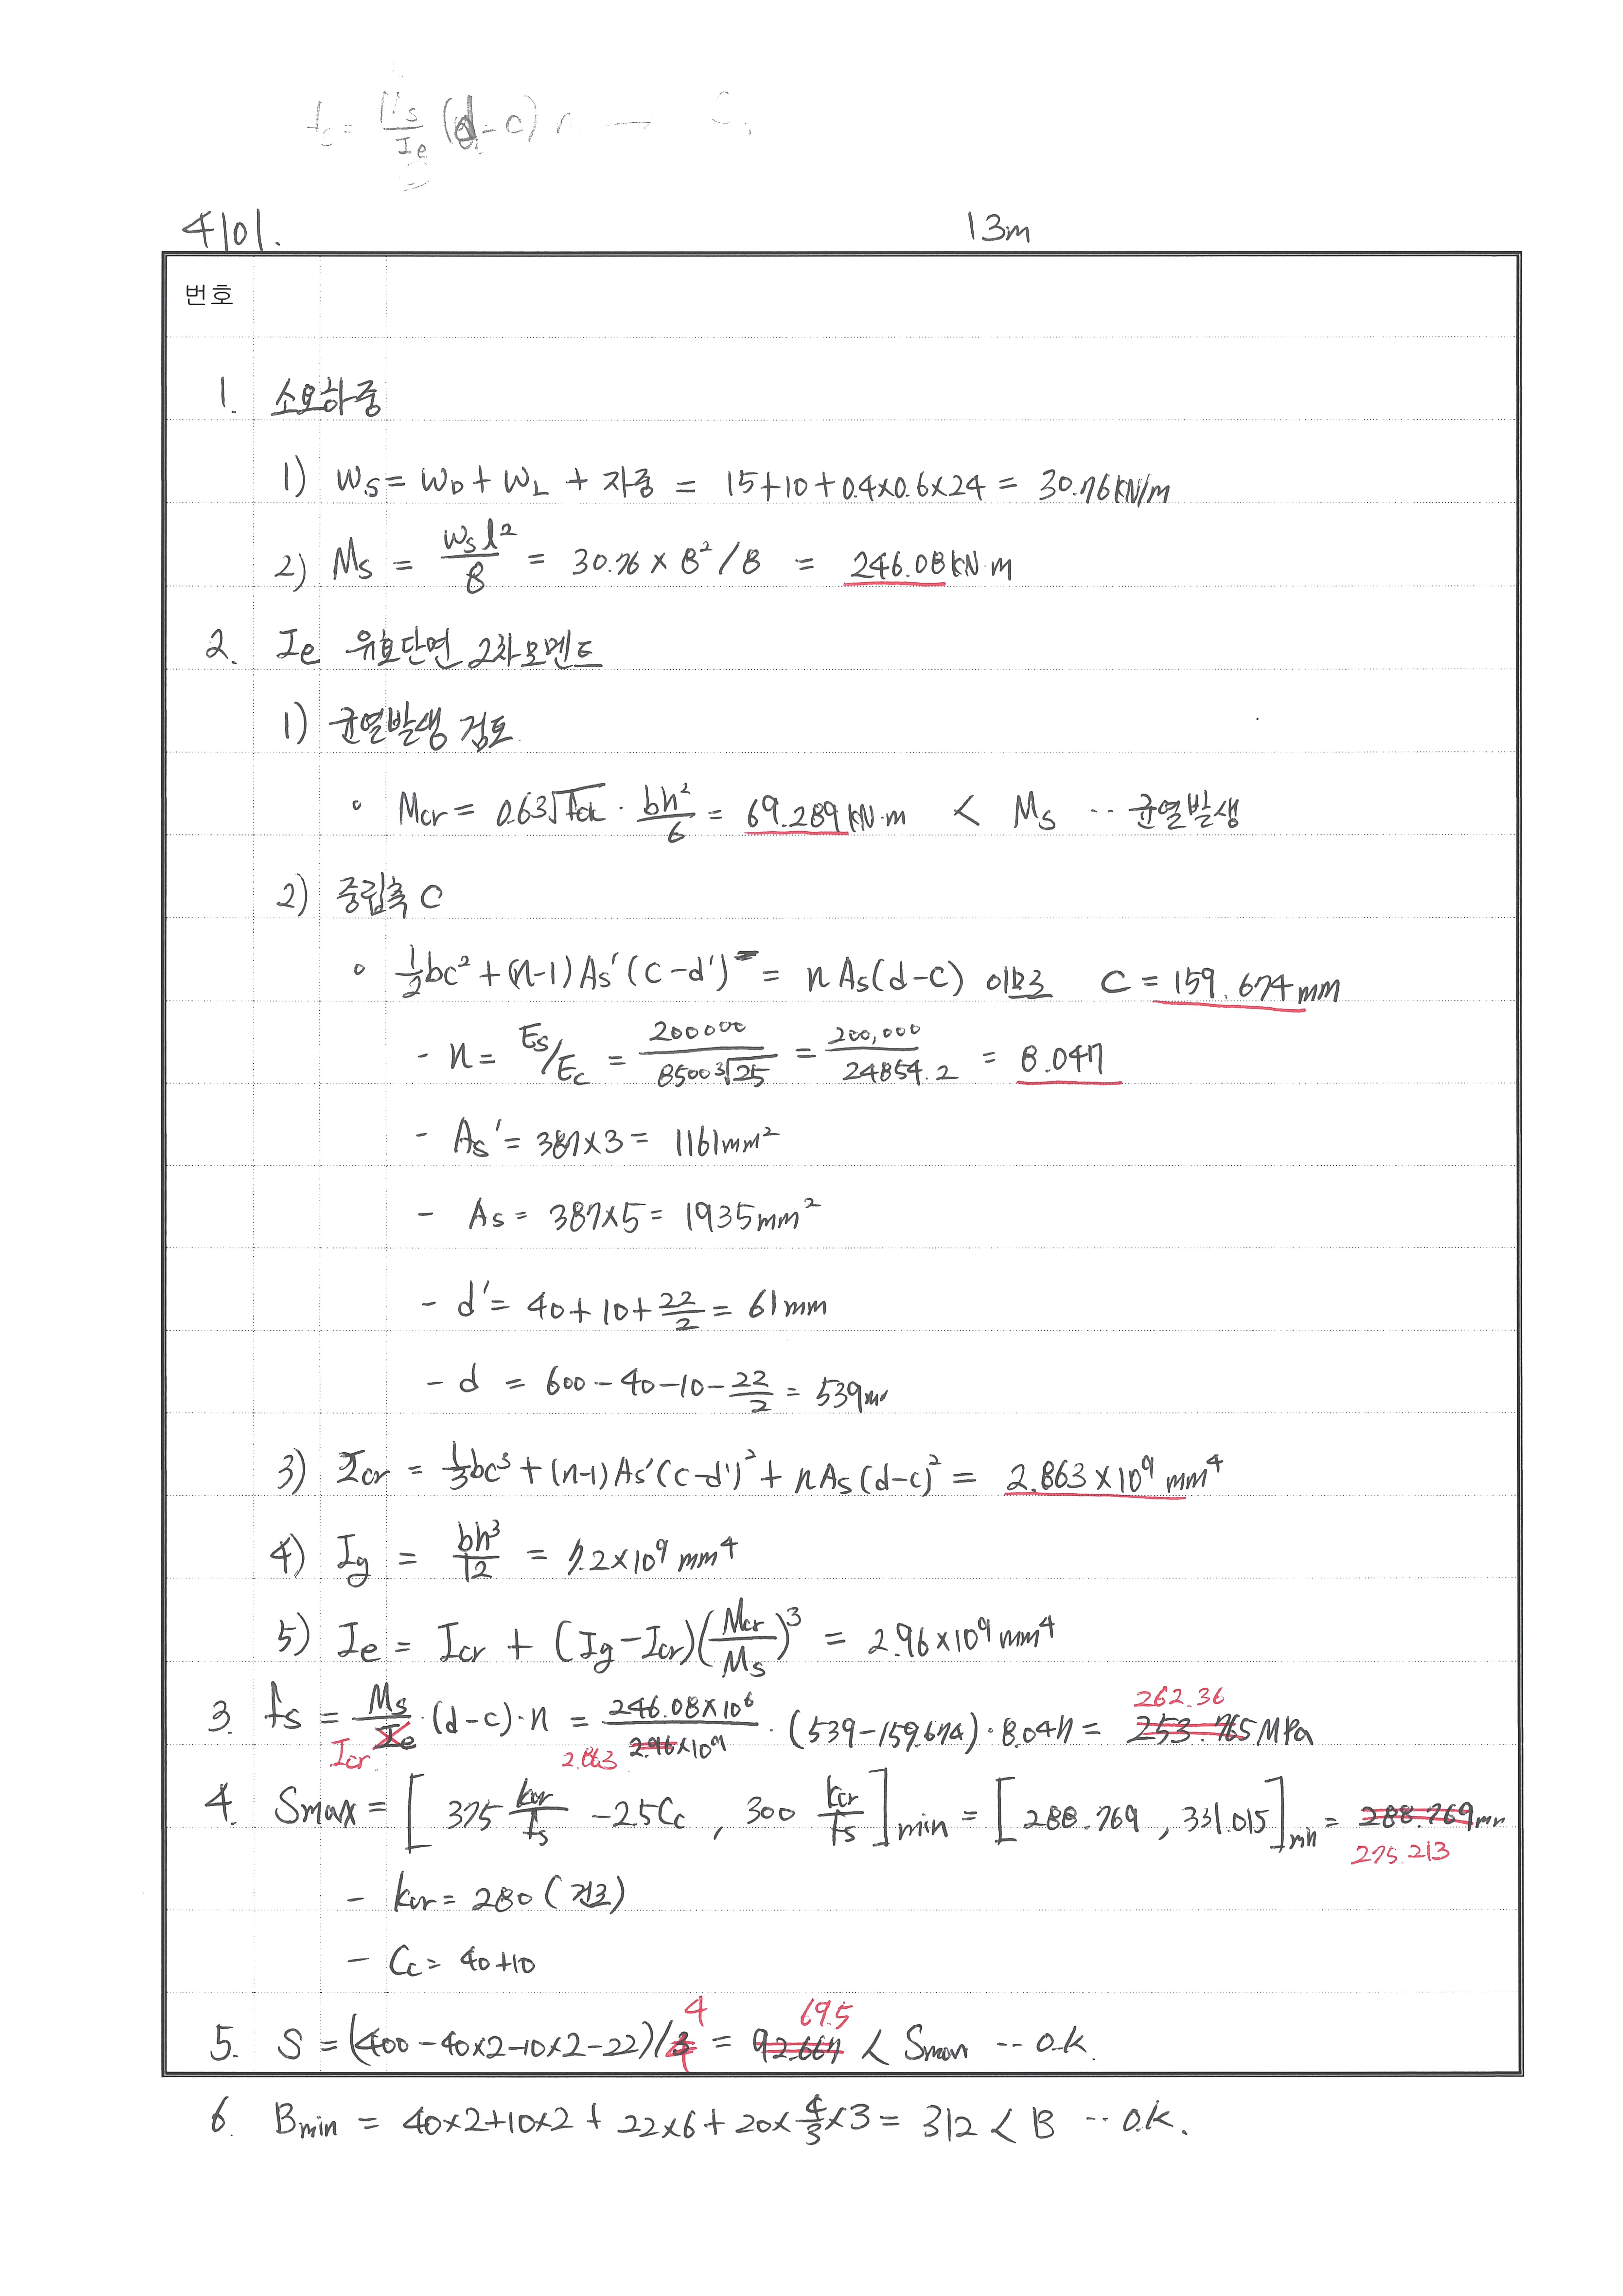 fs = Ms/Ie (d-c)
4101. 13m
번호
1. 소요하중
1) Ws = WD + WL + 자중 = 15+10+0.4×0.6×24 = 30.76kN/m
2) Ms = Wsl²/8 = 30.76 × 8²/8 = 246.08kN·m
2. Ie 유효단면 2차모멘트
1) 균열발생 검토
∘ Mcr = 0.63√fck · bh²/6 = 69.289kN·m < Ms ‥ 균열발생
2) 중립축 C
∘ 1/2bc² + (n-1)As'(c-d') = nAs(d-c) 이므로 C = 159.674mm
- n = Es/Ec = 200000/8500∛25 = 200,000/24854.2 = 8.047
- As' = 387×3 = 1161mm²
- As = 387×5 = 1935mm²
- d' = 40+10+22/2 = 61mm
- d = 600-40-10-22/2 = 539mm
3) Icr = 1/3bc³ + (n-1)As'(c-d')² + nAs(d-c)² = 2.863×10⁹mm⁴
4) Ig = bh³/12 = 7.2×10⁹mm⁴
5) Ie = Icr + (Ig-Icr)(Mcr/Ms)³ = 2.96×10⁹mm⁴
262.36
3. fs = Ms/Ie ·(d-c)·n = 246.08×10⁶/2.96×10⁹ · (539-159.674)·8.047 = 253.765MPa
Icr 2.863
4. Smax = [375 kcr/fs - 2.5Cc , 300 kcr/fs]min = [288.769 , 331.015]min = 288.769mm
275.213
- kcr = 280 (건조)
- Cc = 40+10
4 69.5
5. S = (400-40×2-10×2-22)/3 = 92.667 < Smax ‥ O.K.
6. Bmin = 40×2+10×2 + 22×6 + 20×4/3×3 = 312 < B ‥ O.K.